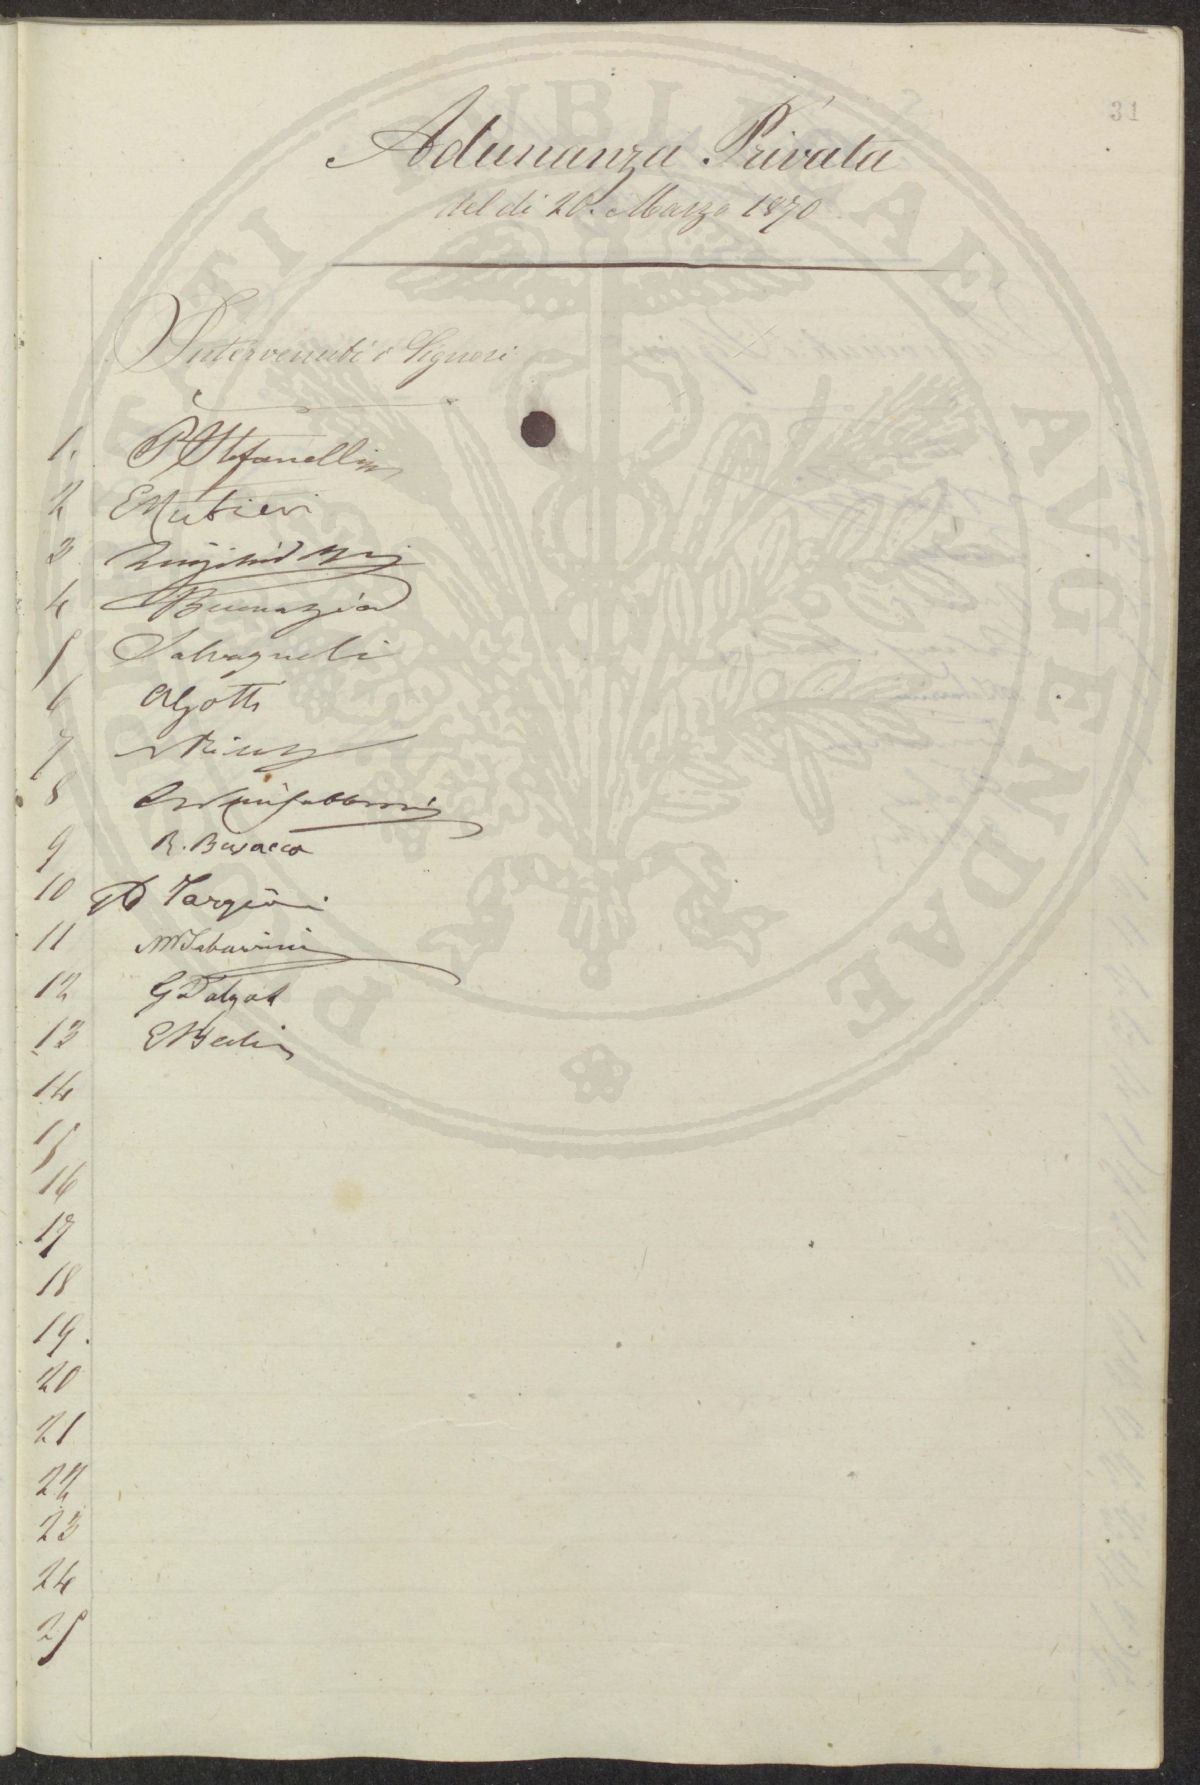 31
Adunanza Privata
del di 20. Marzo 1870
Intervenuti i Signori
1. P Stefanelli
2 E Rubieri
3
4 Buonazia
5 Salvagnoli
6
7
8
9 R. Busacca
10 Targioni
11 M Tabarrini
12
13
14
15
16
17
18
19.
20
21
22
23
24
25
PROSPERITATI PUBLICAE AVGENDAE